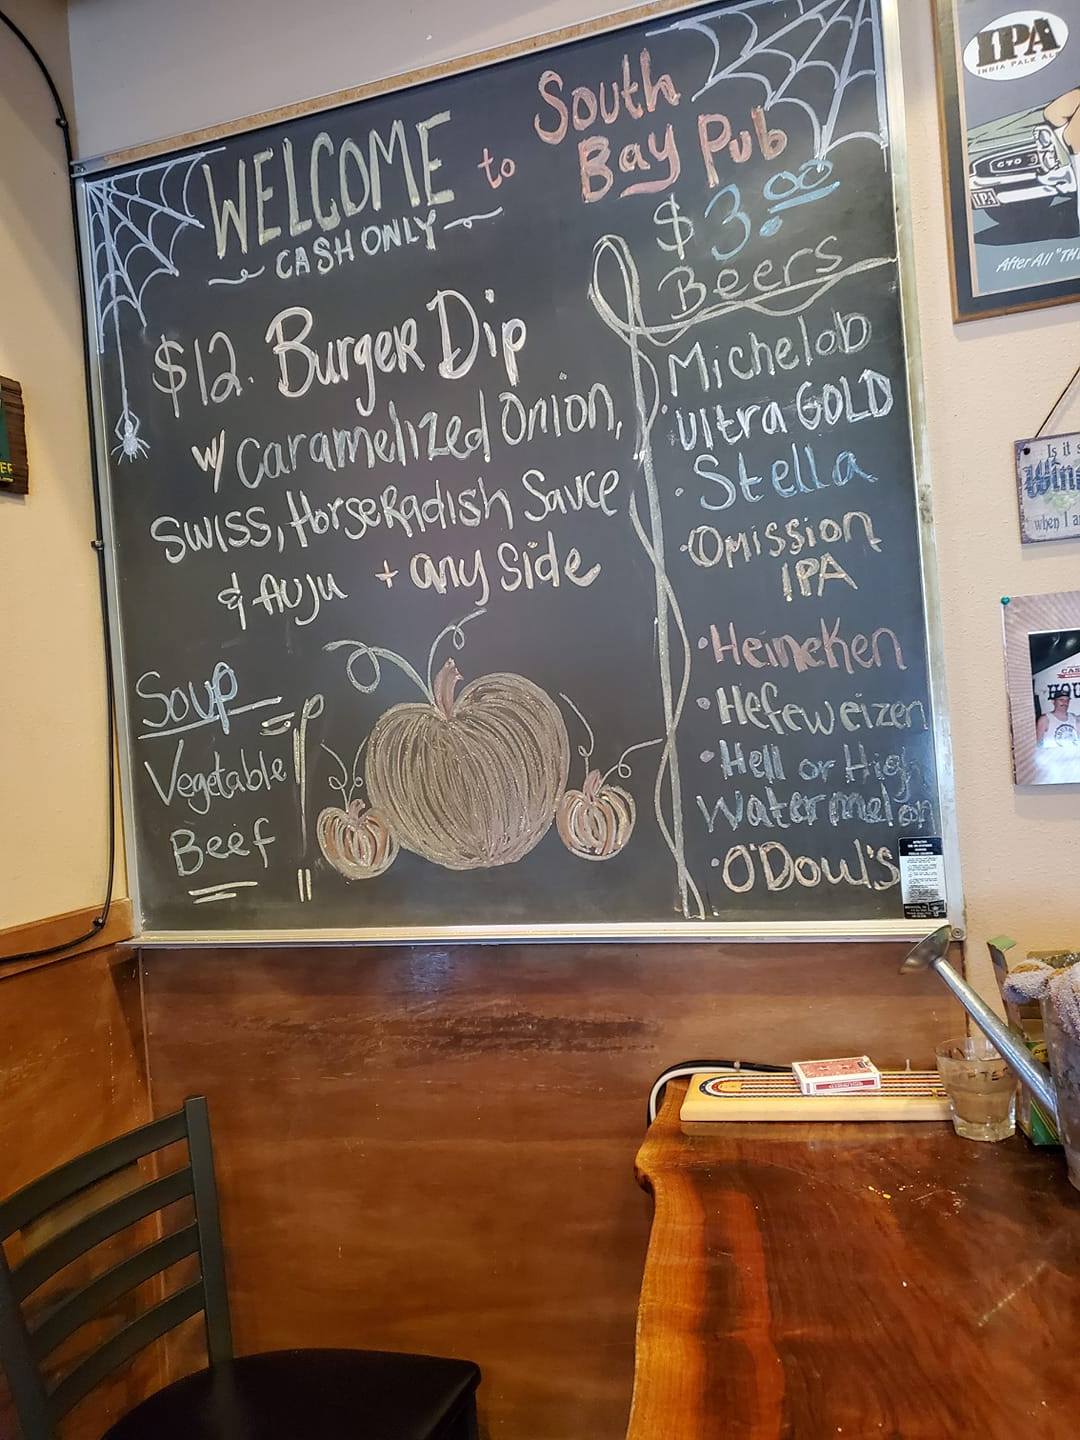 WELCOME to South
Bay Pub
~ CASH ONLY ~
$12. Burger Dip
w/ Caramelized Onion,
Swiss, HorseRadish Sauce
& Auju + any side
Soup
Vegetable
Beef
$3.00
Beers
Michelob
·Ultra GOLD
·Stella
·Omission
IPA
·Heineken
·Hefeweizen
·Hell or High
Watermelon
·O'Doul's
IPA
INDIA PALE
GTO
IPA
After All "TH
Is it
Wine
when I a